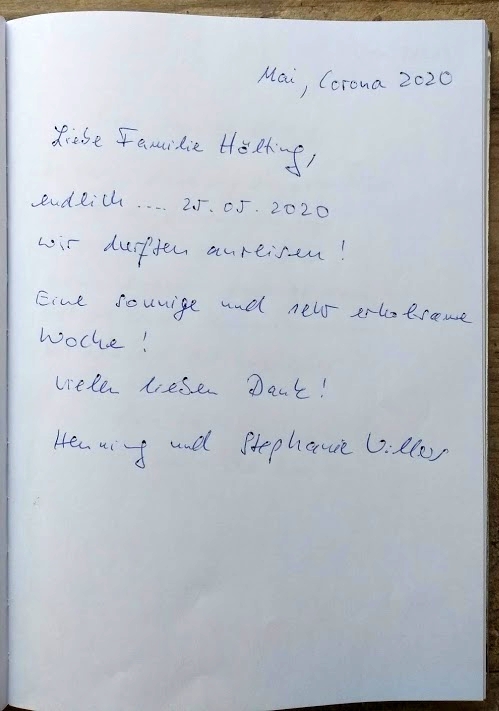 Mai, Corona 2020
Liebe Familie Hölting,
endlich .... 25.05.2020
wir durften anreisen!
Eine sonnige und sehr erholsame
Woche!
Vielen lieben Dank!
Henning und Stephanie